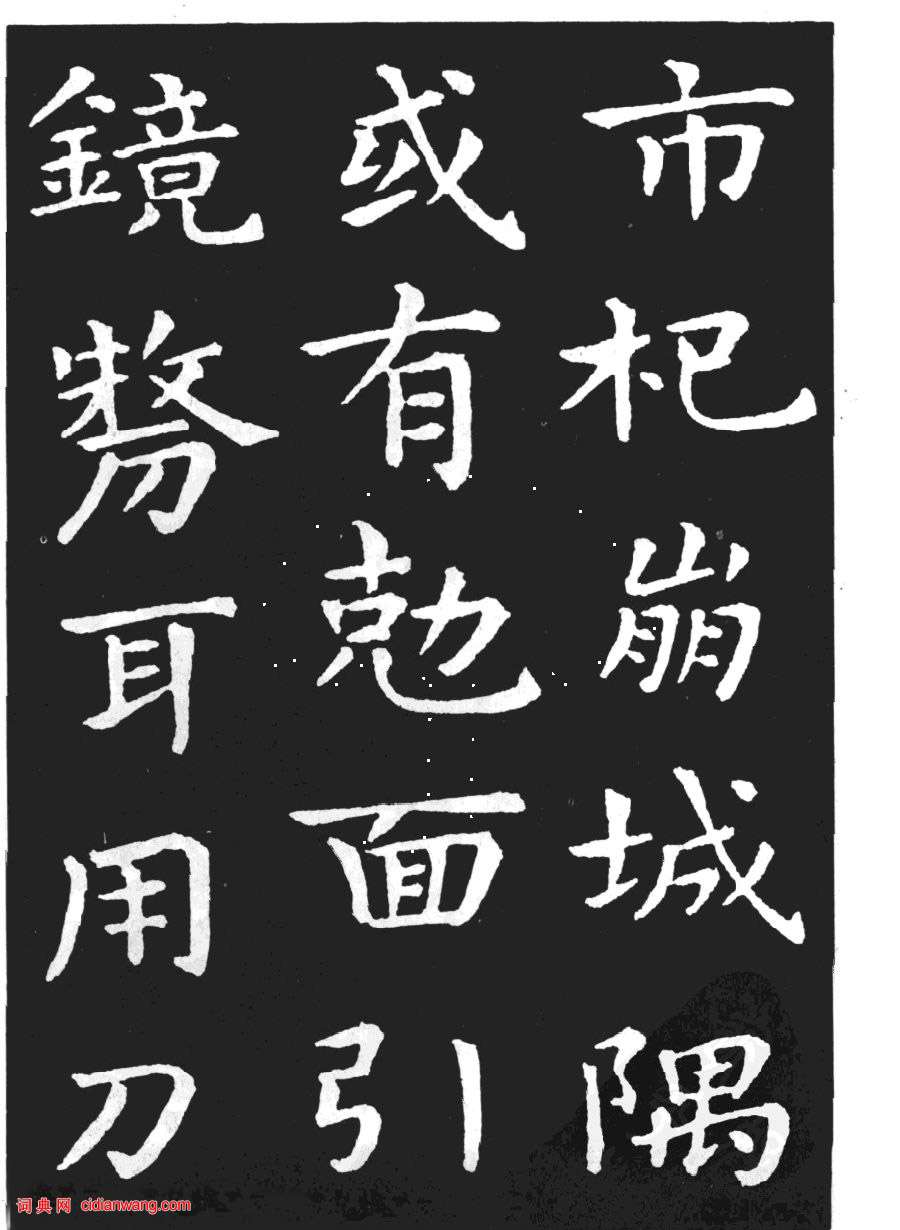 市杞崩城隅
或有勊面引
鏡剺耳用刀
词典网 cidianwang.com